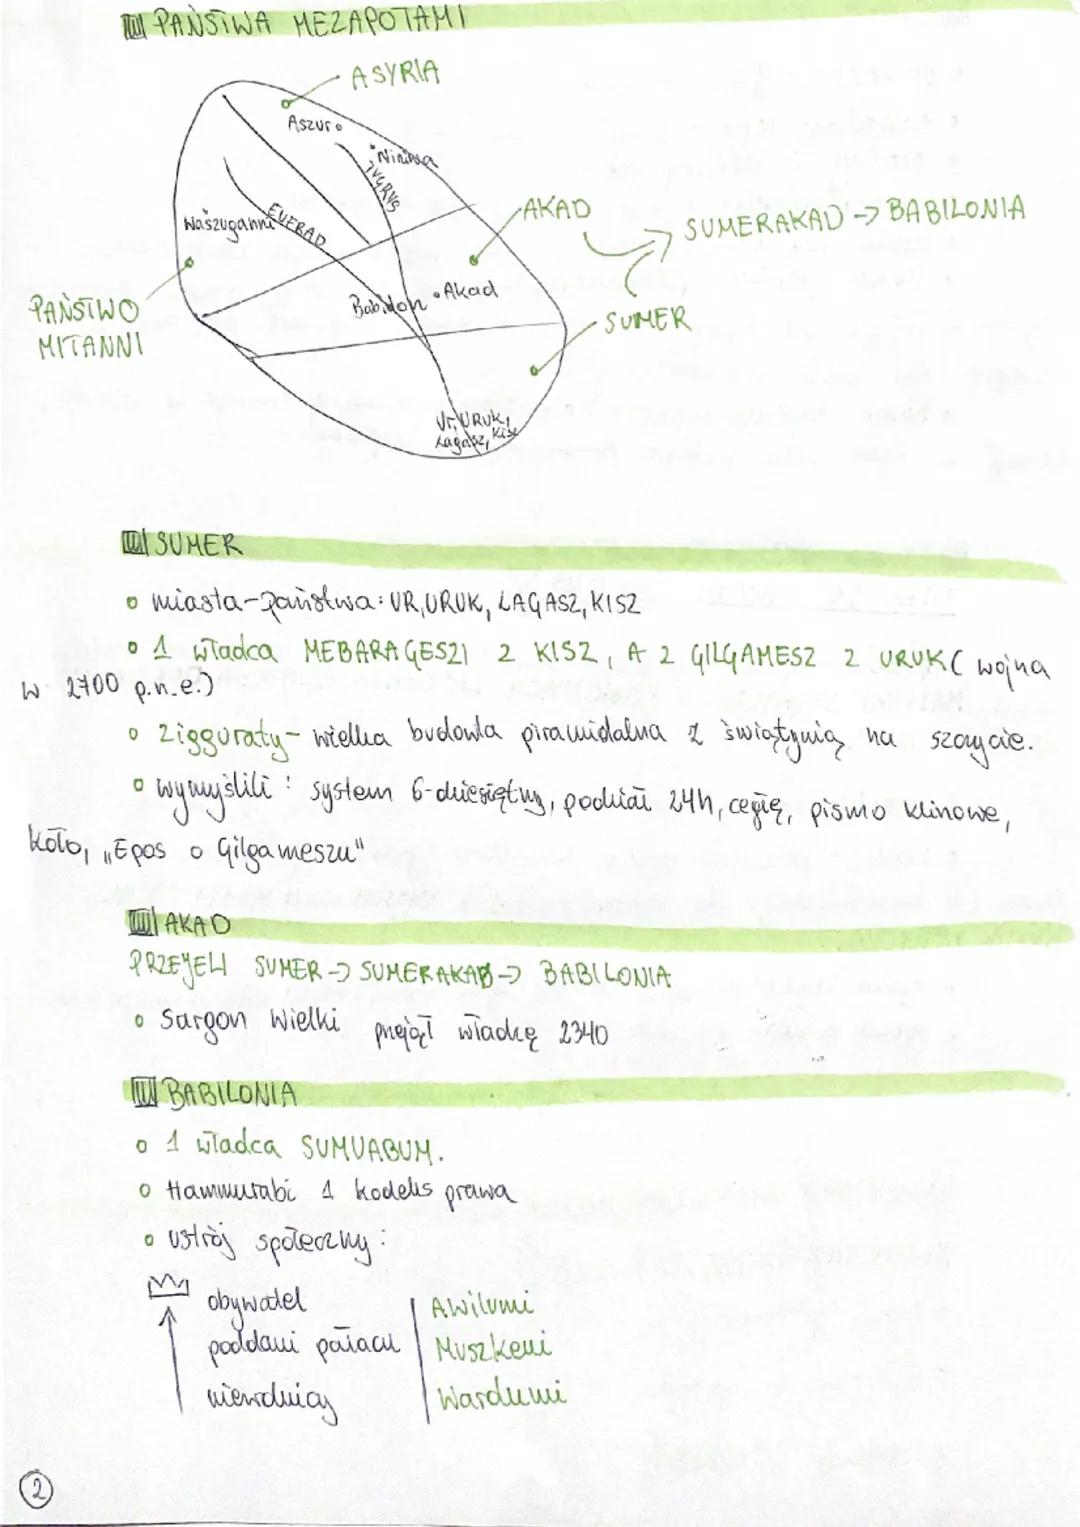 PAŃSTWA MEZAPOTAMI
ASYRIA
Aszur
Niniwa
TYGRYS
Waszuganni
EUFRAD
AKAD
SUMERAKAD -> BABILONIA
Babilon
Akad
PAŃSTWO
MITANNI
SUMER
Ur, URUK,
Lagasz, Kisz
SUMER
miasta-państwa: UR, URUK, LAGASZ, KISZ
1 władca MEBARAGESZI Z KISZ, A 2 GILGAMESZ Z URUK ( wojna
w 2700 p.n.e.)
Zigguraty- wielka budowla piramidalna z świątynią na szczycie.
wymyślili : system 6-dziesiętny, podział 24h, cegłę, pismo klinowe,
koło, „Epos o Gilgameszu"
AKAD
PRZEJELI SUMER -> SUMERAKAD -> BABILONIA
Sargon Wielki przejął władzę 2340
BABILONIA
1 władca SUMUABUM.
Hammurabi 1 kodeks prawa
ustrój społeczny:
obywatel | Awilumi
poddani pałacu | Muszkeni
niewolnicy | Wardumi
2